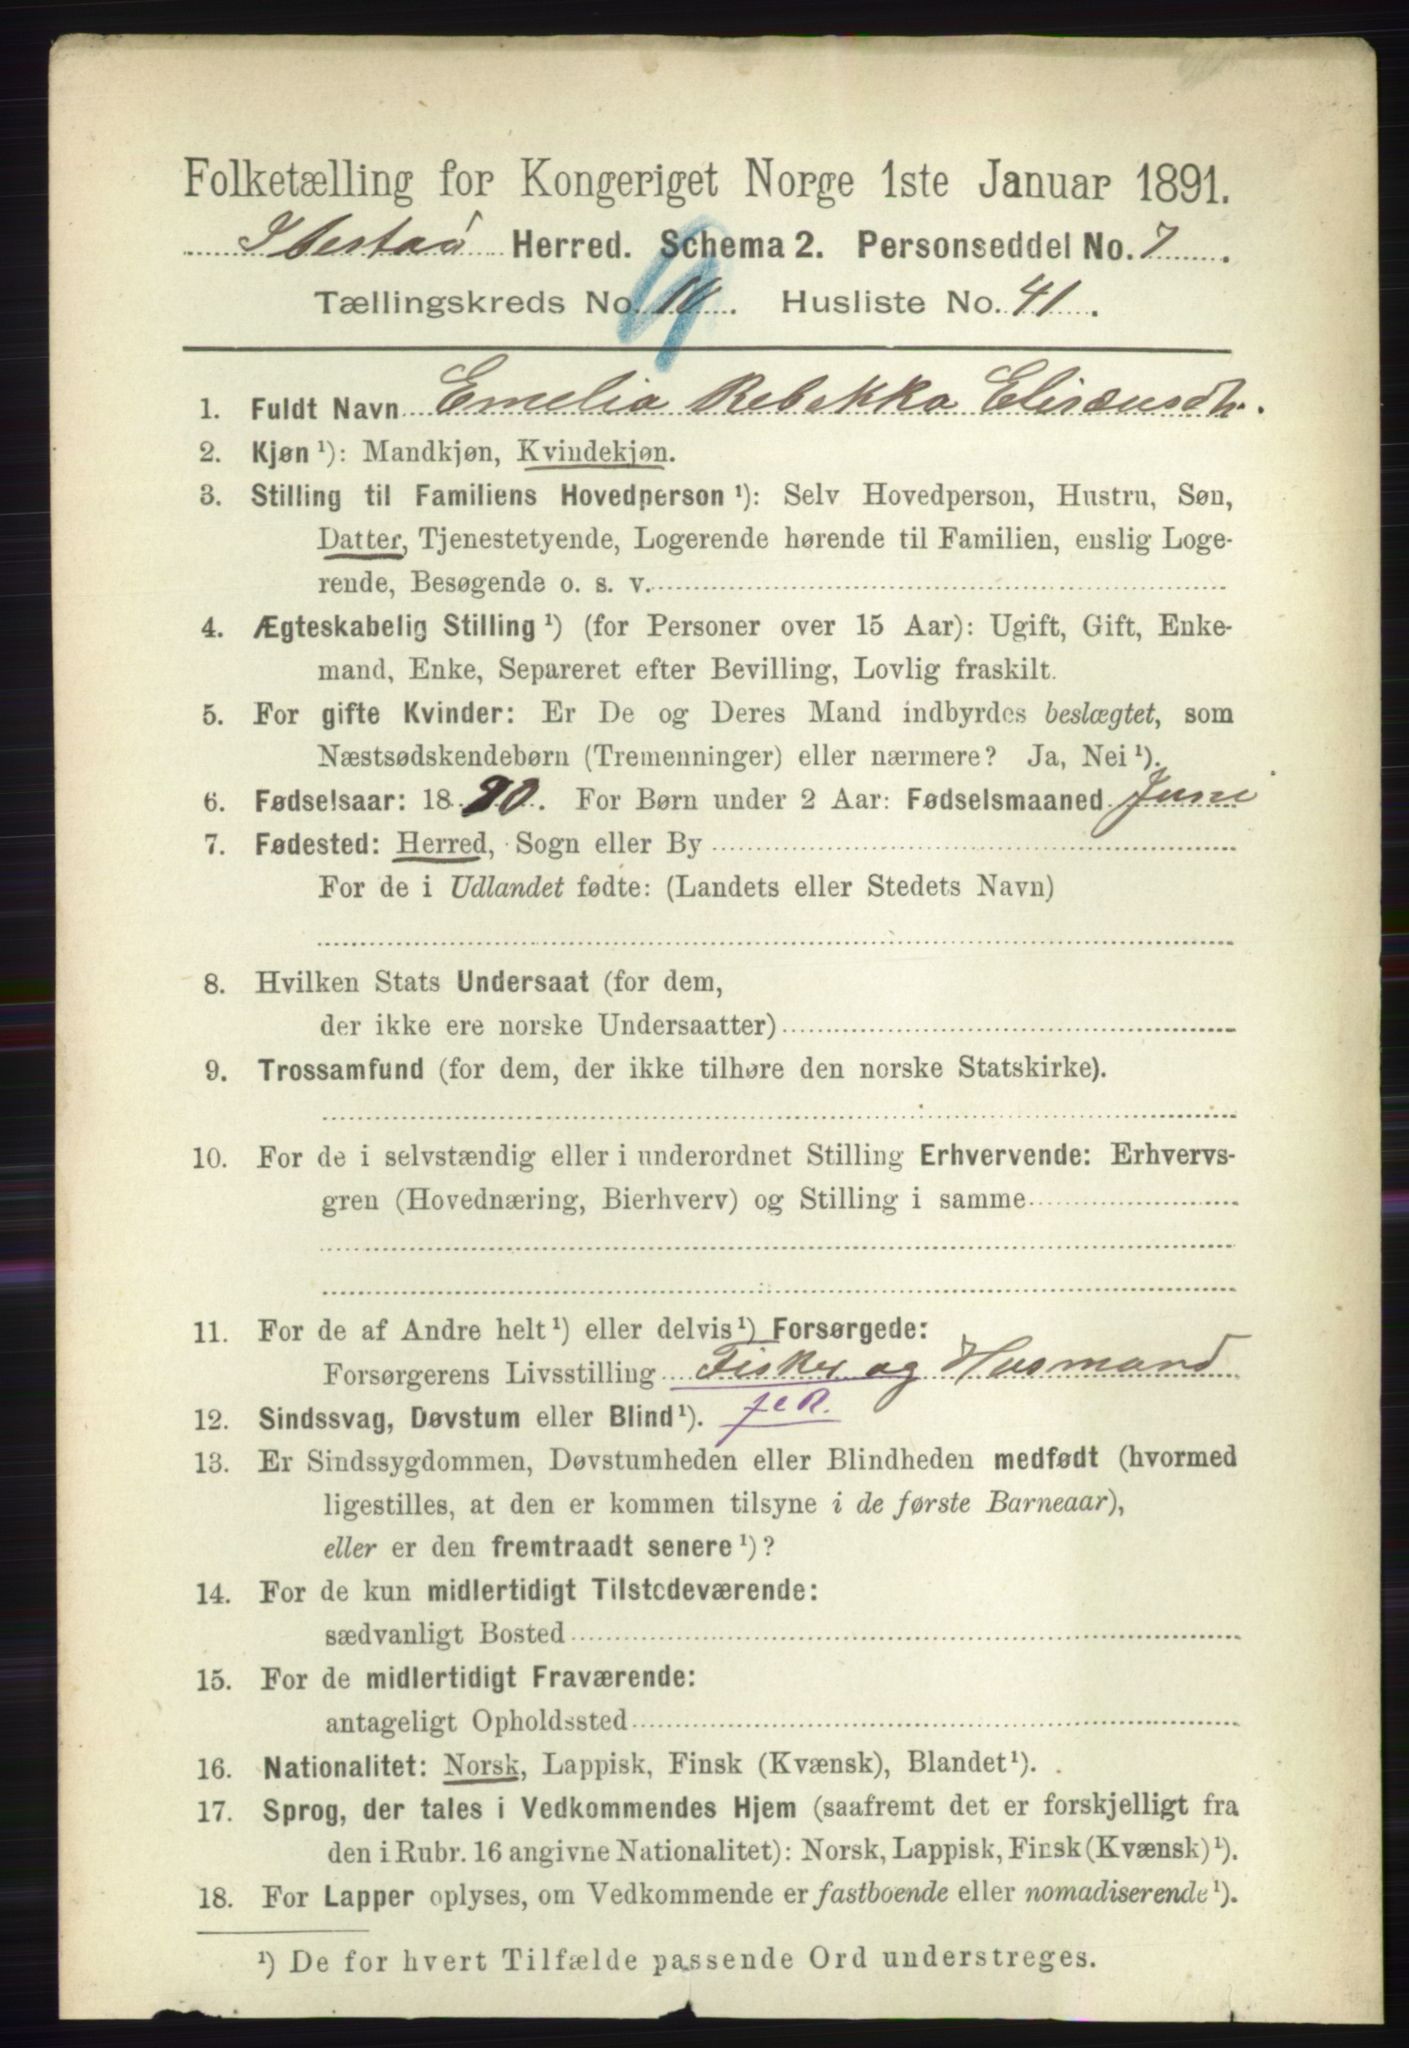 Folketælling for Kongeriget Norge 1ste Januar 1891.
Ibestad Herred. Schema 2. Personseddel No. 7.
Tællingskreds No. 10. Husliste No. 41.
9
1. Fuldt Navn Emelia Rebekka Elisæusdtr.
2. Kjøn ¹): Mandkjøn, Kvindekjøn.
3. Stilling til Familiens Hovedperson ¹): Selv Hovedperson, Hustru, Søn,
Datter, Tjenestetyende, Logerende hørende til Familien, enslig Loge-
rende, Besøgende o. s. v.
4. Ægteskabelig Stilling ¹) (for Personer over 15 Aar): Ugift, Gift, Enke-
mand, Enke, Separeret efter Bevilling, Lovlig fraskilt.
5. For gifte Kvinder: Er De og Deres Mand indbyrdes beslægtet, som
Næstsødskendebørn (Tremenninger) eller nærmere? Ja, Nei ¹).
6. Fødselsaar: 1890. For Børn under 2 Aar: Fødselsmaaned Juni
7. Fødested: Herred, Sogn eller By
For de i Udlandet fødte: (Landets eller Stedets Navn)
8. Hvilken Stats Undersaat (for dem,
der ikke ere norske Undersaatter)
9. Trossamfund (for dem, der ikke tilhøre den norske Statskirke).
10. For de i selvstændig eller i underordnet Stilling Erhvervende: Erhvervs-
gren (Hovednæring, Bierhverv) og Stilling i samme
11. For de af Andre helt ¹) eller delvis ¹) Forsørgede:
Forsørgerens Livsstilling Fisker og Husmand
12. Sindssvag, Døvstum eller Blind ¹).
13. Er Sindssygdommen, Døvstumheden eller Blindheden medfødt (hvormed
ligestilles, at den er kommen tilsyne i de første Barneaar),
eller er den fremtraadt senere ¹)?
14. For de kun midlertidigt Tilstedeværende:
sædvanligt Bosted
15. For de midlertidigt Fraværende:
antageligt Opholdssted
16. Nationalitet: Norsk, Lappisk, Finsk (Kvænsk), Blandet ¹).
17. Sprog, der tales i Vedkommendes Hjem (saafremt det er forskjelligt fra
den i Rubr. 16 angivne Nationalitet): Norsk, Lappisk, Finsk (Kvænsk) ¹).
18. For Lapper oplyses, om Vedkommende er fastboende eller nomadiserende ¹).
¹) De for hvert Tilfælde passende Ord understreges.